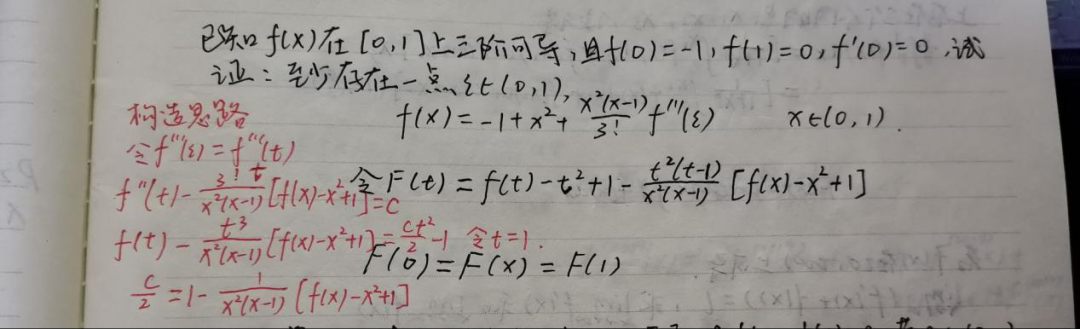 已知 f(x) 在 [0,1] 上三阶可导,且f(0)=-1, f(1)=0, f'(0)=0 ,试
证:至少存在一点ξ∈(0,1),
f(x)=-1+x²+\frac{x²(x-1)}{3!}f'''(ξ) x∈(0,1).
构造思路
令f'''(ξ)=f'''(t)
令F(t)=f(t)-t²+1-\frac{t²(t-1)}{x²(x-1)}[f(x)-x²+1]
f''(t)-\frac{3!t}{x²(x-1)}[f(x)-x²+1]=C
f(t)-\frac{t³}{x²(x-1)}[f(x)-x²+1]=\frac{Ct²}{2}-1 令t=1.
F(0)=F(x)=F(1)
\frac{C}{2}=1-\frac{1}{x²(x-1)}[f(x)-x²+1]